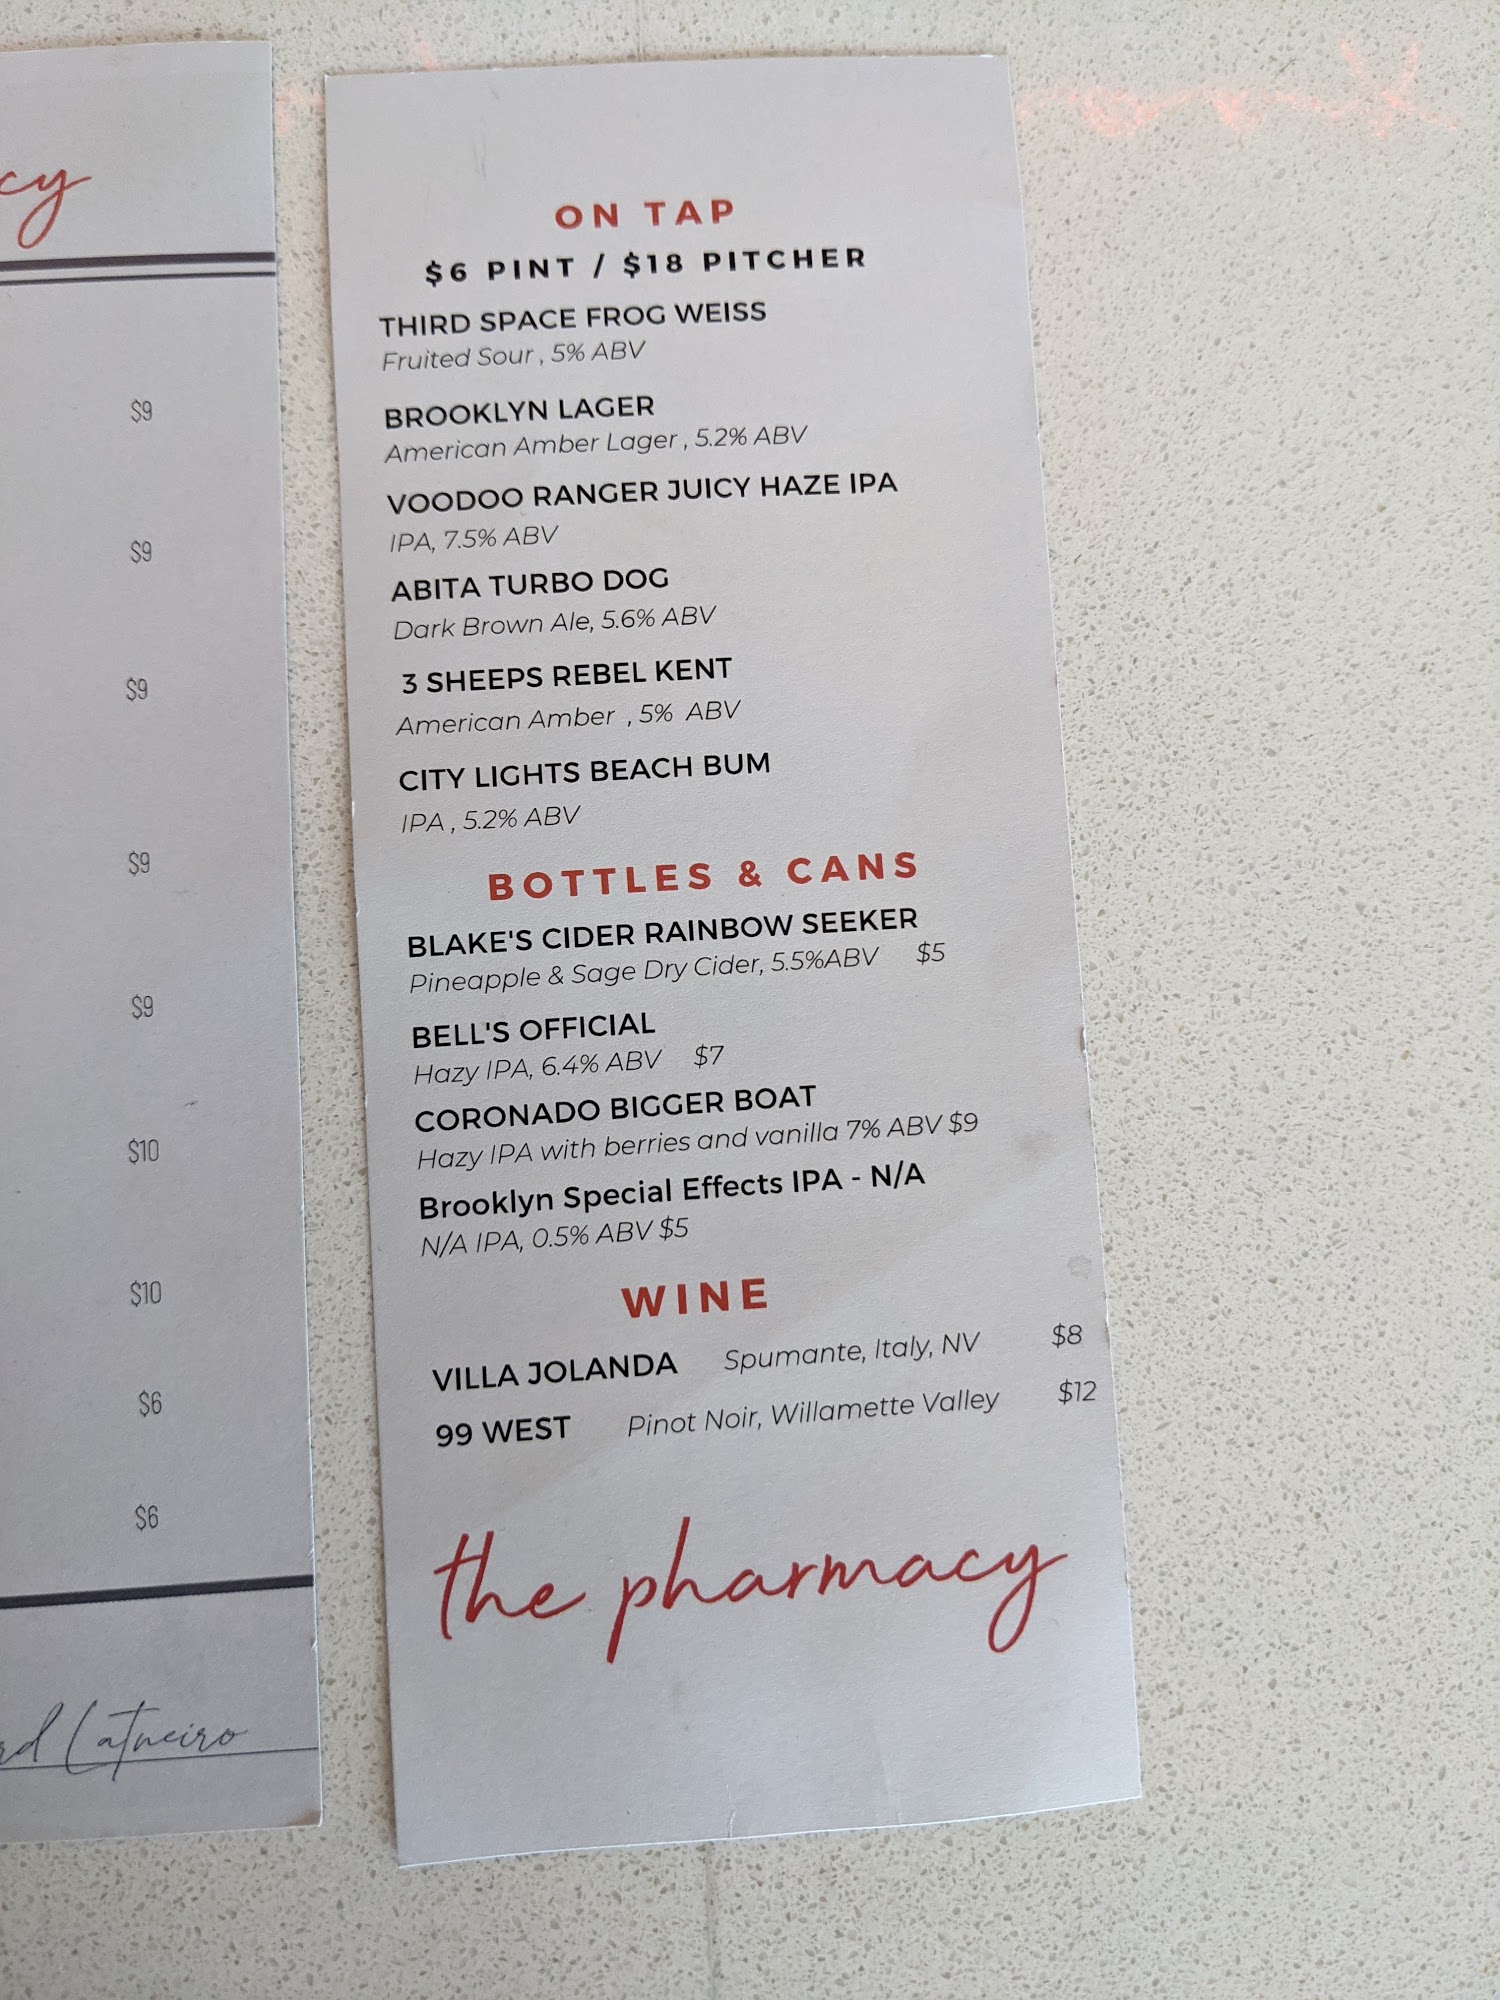 cy
$9
$9
$9
$9
$9
$10
$10
$6
$6
ON TAP
$6 PINT / $18 PITCHER
THIRD SPACE FROG WEISS
Fruited Sour , 5% ABV
BROOKLYN LAGER
American Amber Lager , 5.2% ABV
VOODOO RANGER JUICY HAZE IPA
IPA, 7.5% ABV
ABITA TURBO DOG
Dark Brown Ale, 5.6% ABV
3 SHEEPS REBEL KENT
American Amber , 5% ABV
CITY LIGHTS BEACH BUM
IPA , 5.2% ABV
BOTTLES & CANS
BLAKE'S CIDER RAINBOW SEEKER
Pineapple & Sage Dry Cider, 5.5%ABV $5
BELL'S OFFICIAL
Hazy IPA, 6.4% ABV $7
CORONADO BIGGER BOAT
Hazy IPA with berries and vanilla 7% ABV $9
Brooklyn Special Effects IPA - N/A
N/A IPA, 0.5% ABV $5
WINE
VILLA JOLANDA Spumante, Italy, NV $8
99 WEST Pinot Noir, Willamette Valley $12
the pharmacy